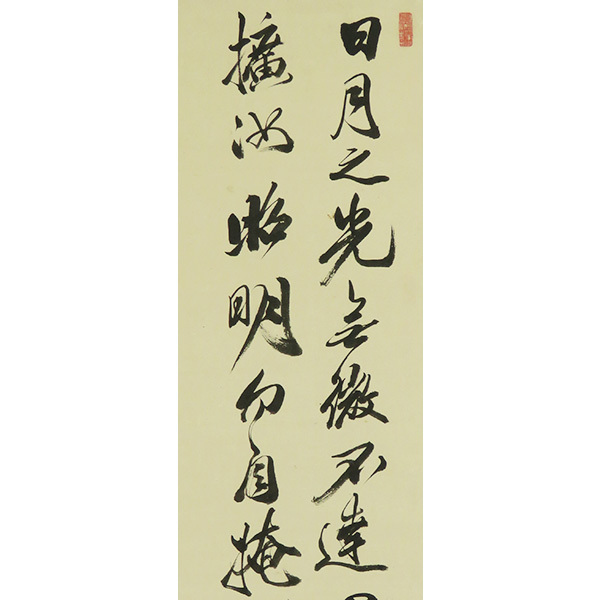 日月之光無微不達
擴汝昭明勿自掩